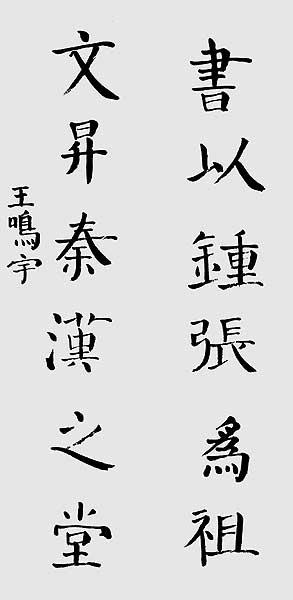 書以鍾張爲祖
文昇秦漢之堂
王鳴宇